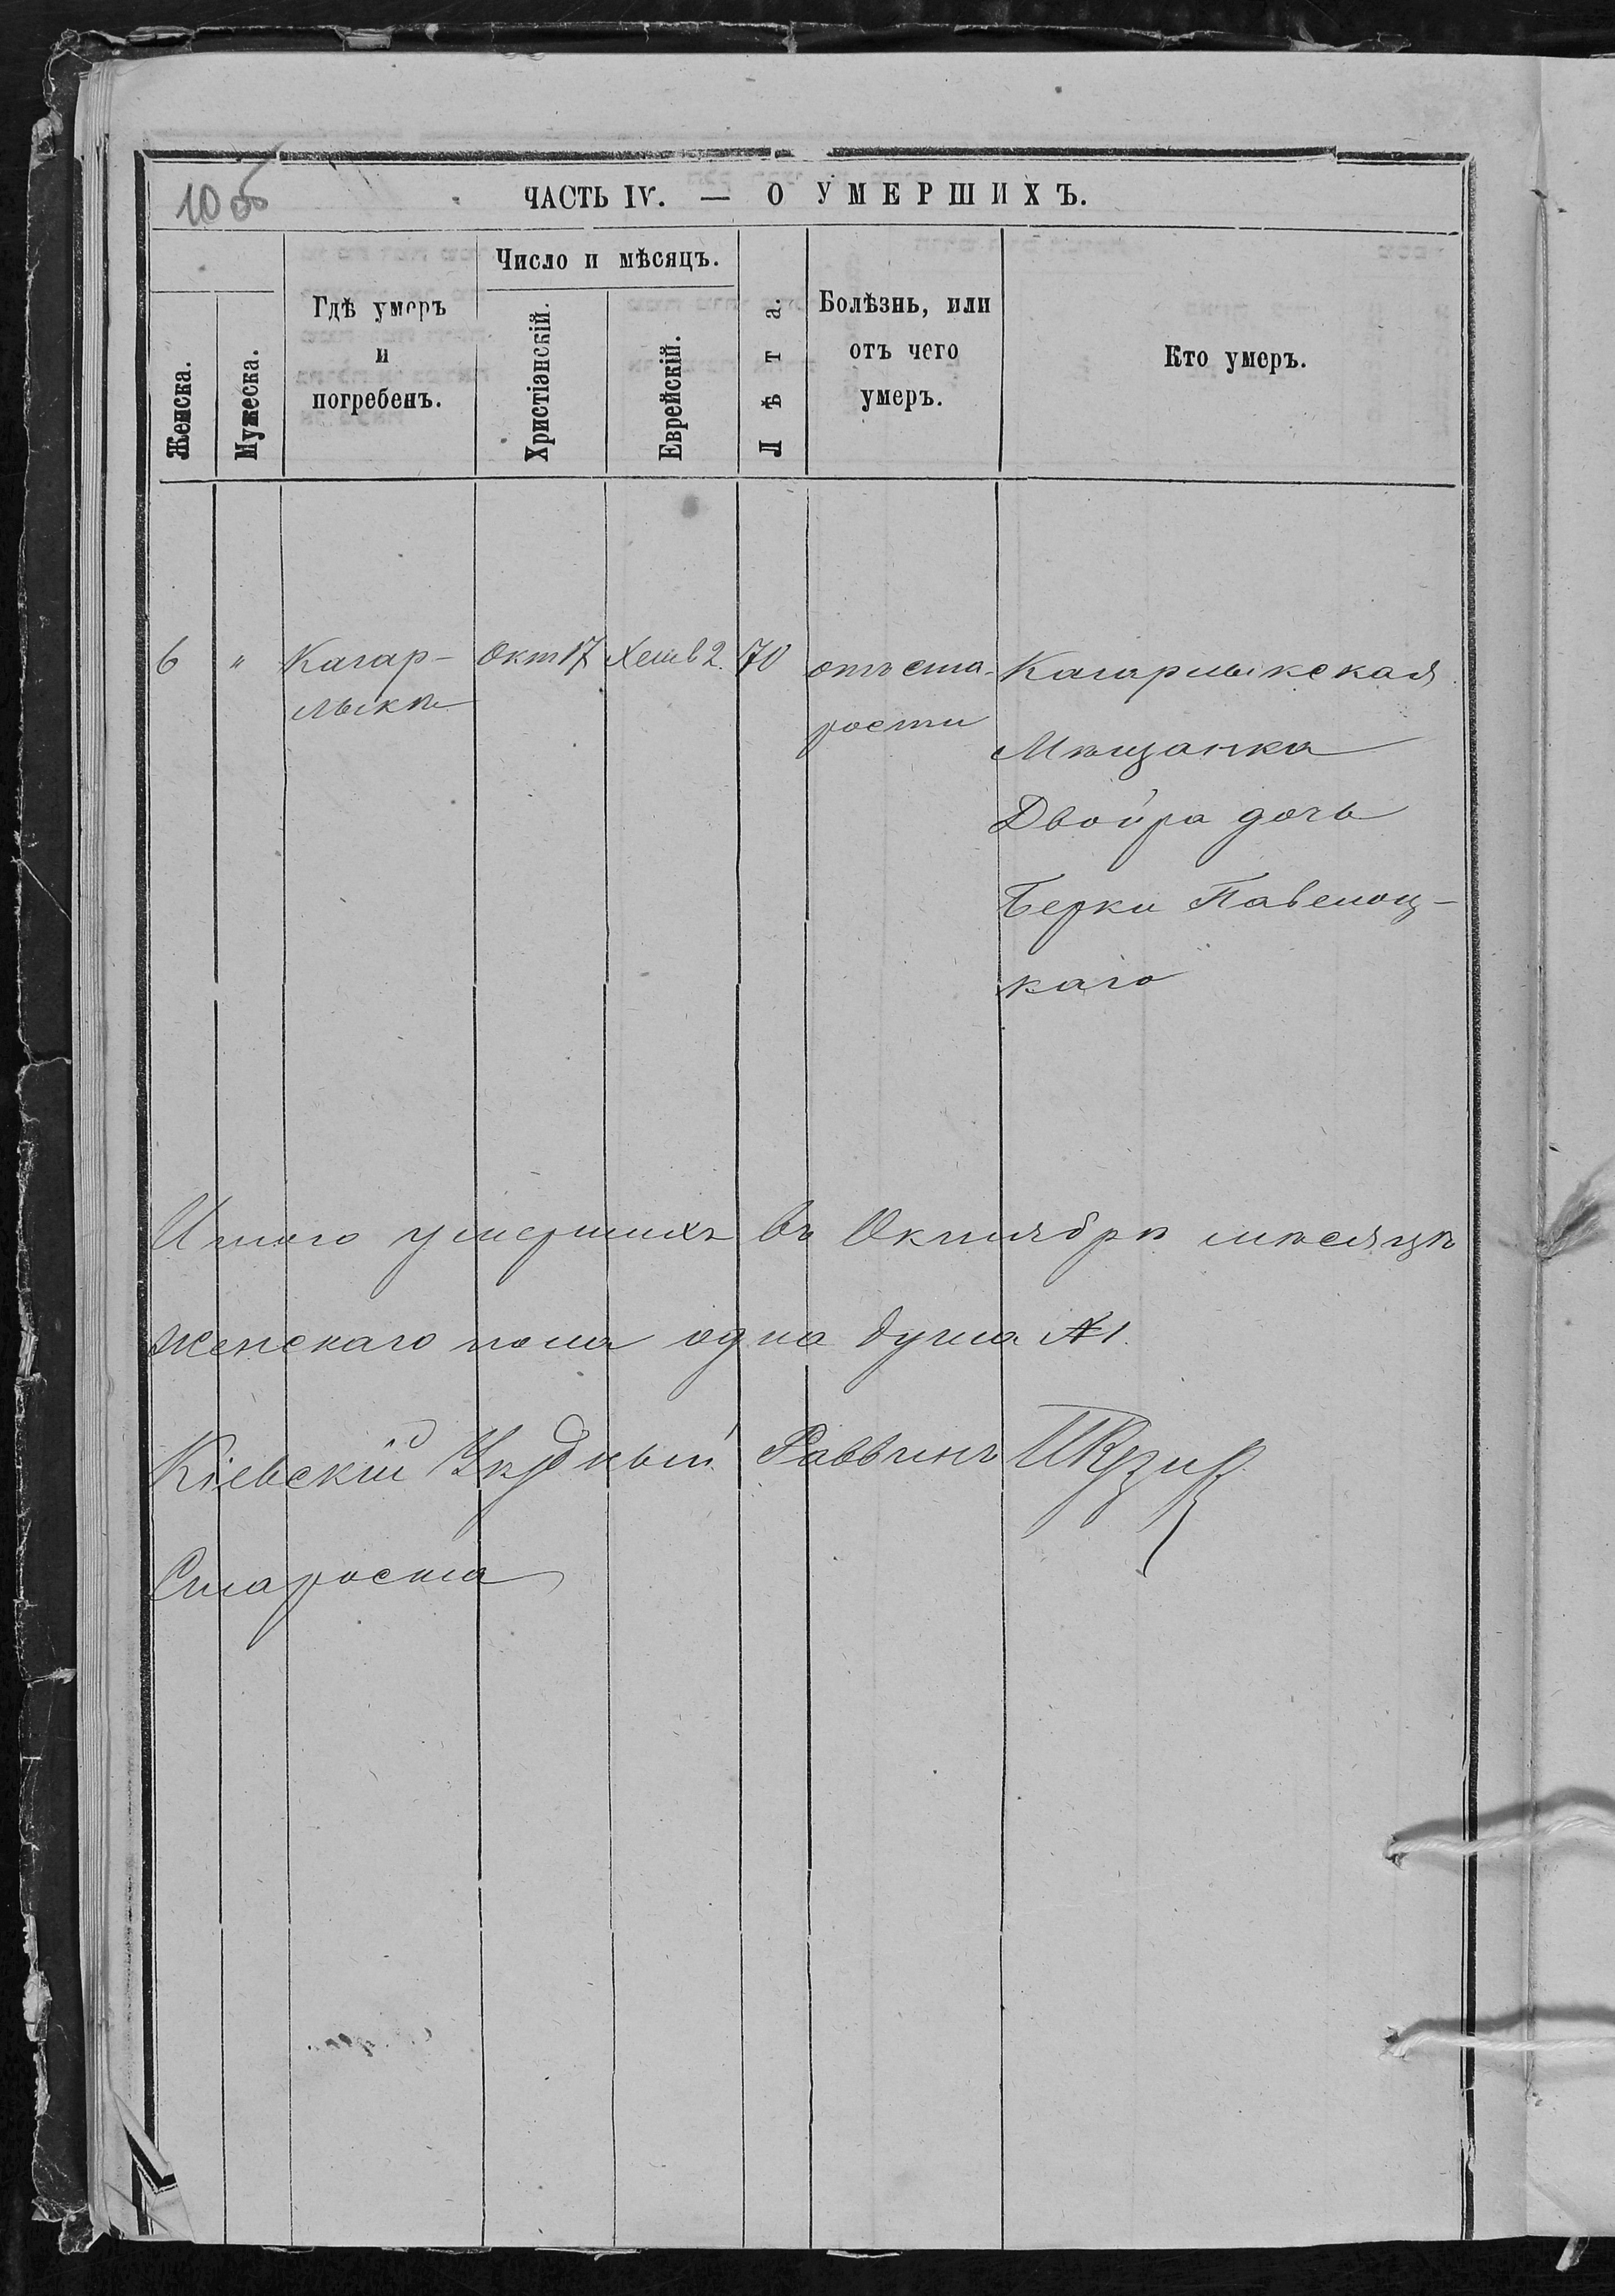 10об
ЧАСТЬ IV. — О УМЕРШИХЪ.
Женска.
Мужеска.
Гдѣ умеръ
и
погребенъ.
Число и мѣсяцъ.
Христіанскій.
Еврейскій.
Лѣта.
Болѣзнь, или
отъ чего
умеръ.
Кто умеръ.
6 " Кагар- Окт 17 Хешв 2. 70 отъ ста- Кагарлыкская
лыкѣ рости
Мѣщанка
Двойра дочь
Берки Паволоц-
каго
Итого умершихъ въ Октябрѣ мѣсяцѣ
женскаго пола одна душа №1.
Кіевскій Уѣздный Раввинъ
Староста